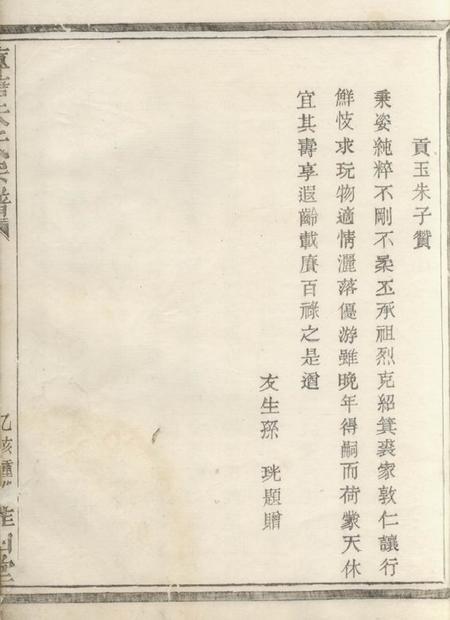 貢玉朱子贊
秉姿純粹不剛不柔丕承祖烈克紹箕裘家敦仁讓行
鮮忮求玩物適情灑落優游雖晚年得嗣而荷蒙天休
宜其壽享遐齡載賡百祿之是遒
友生孫 珖題贈
宗譜
乙亥重